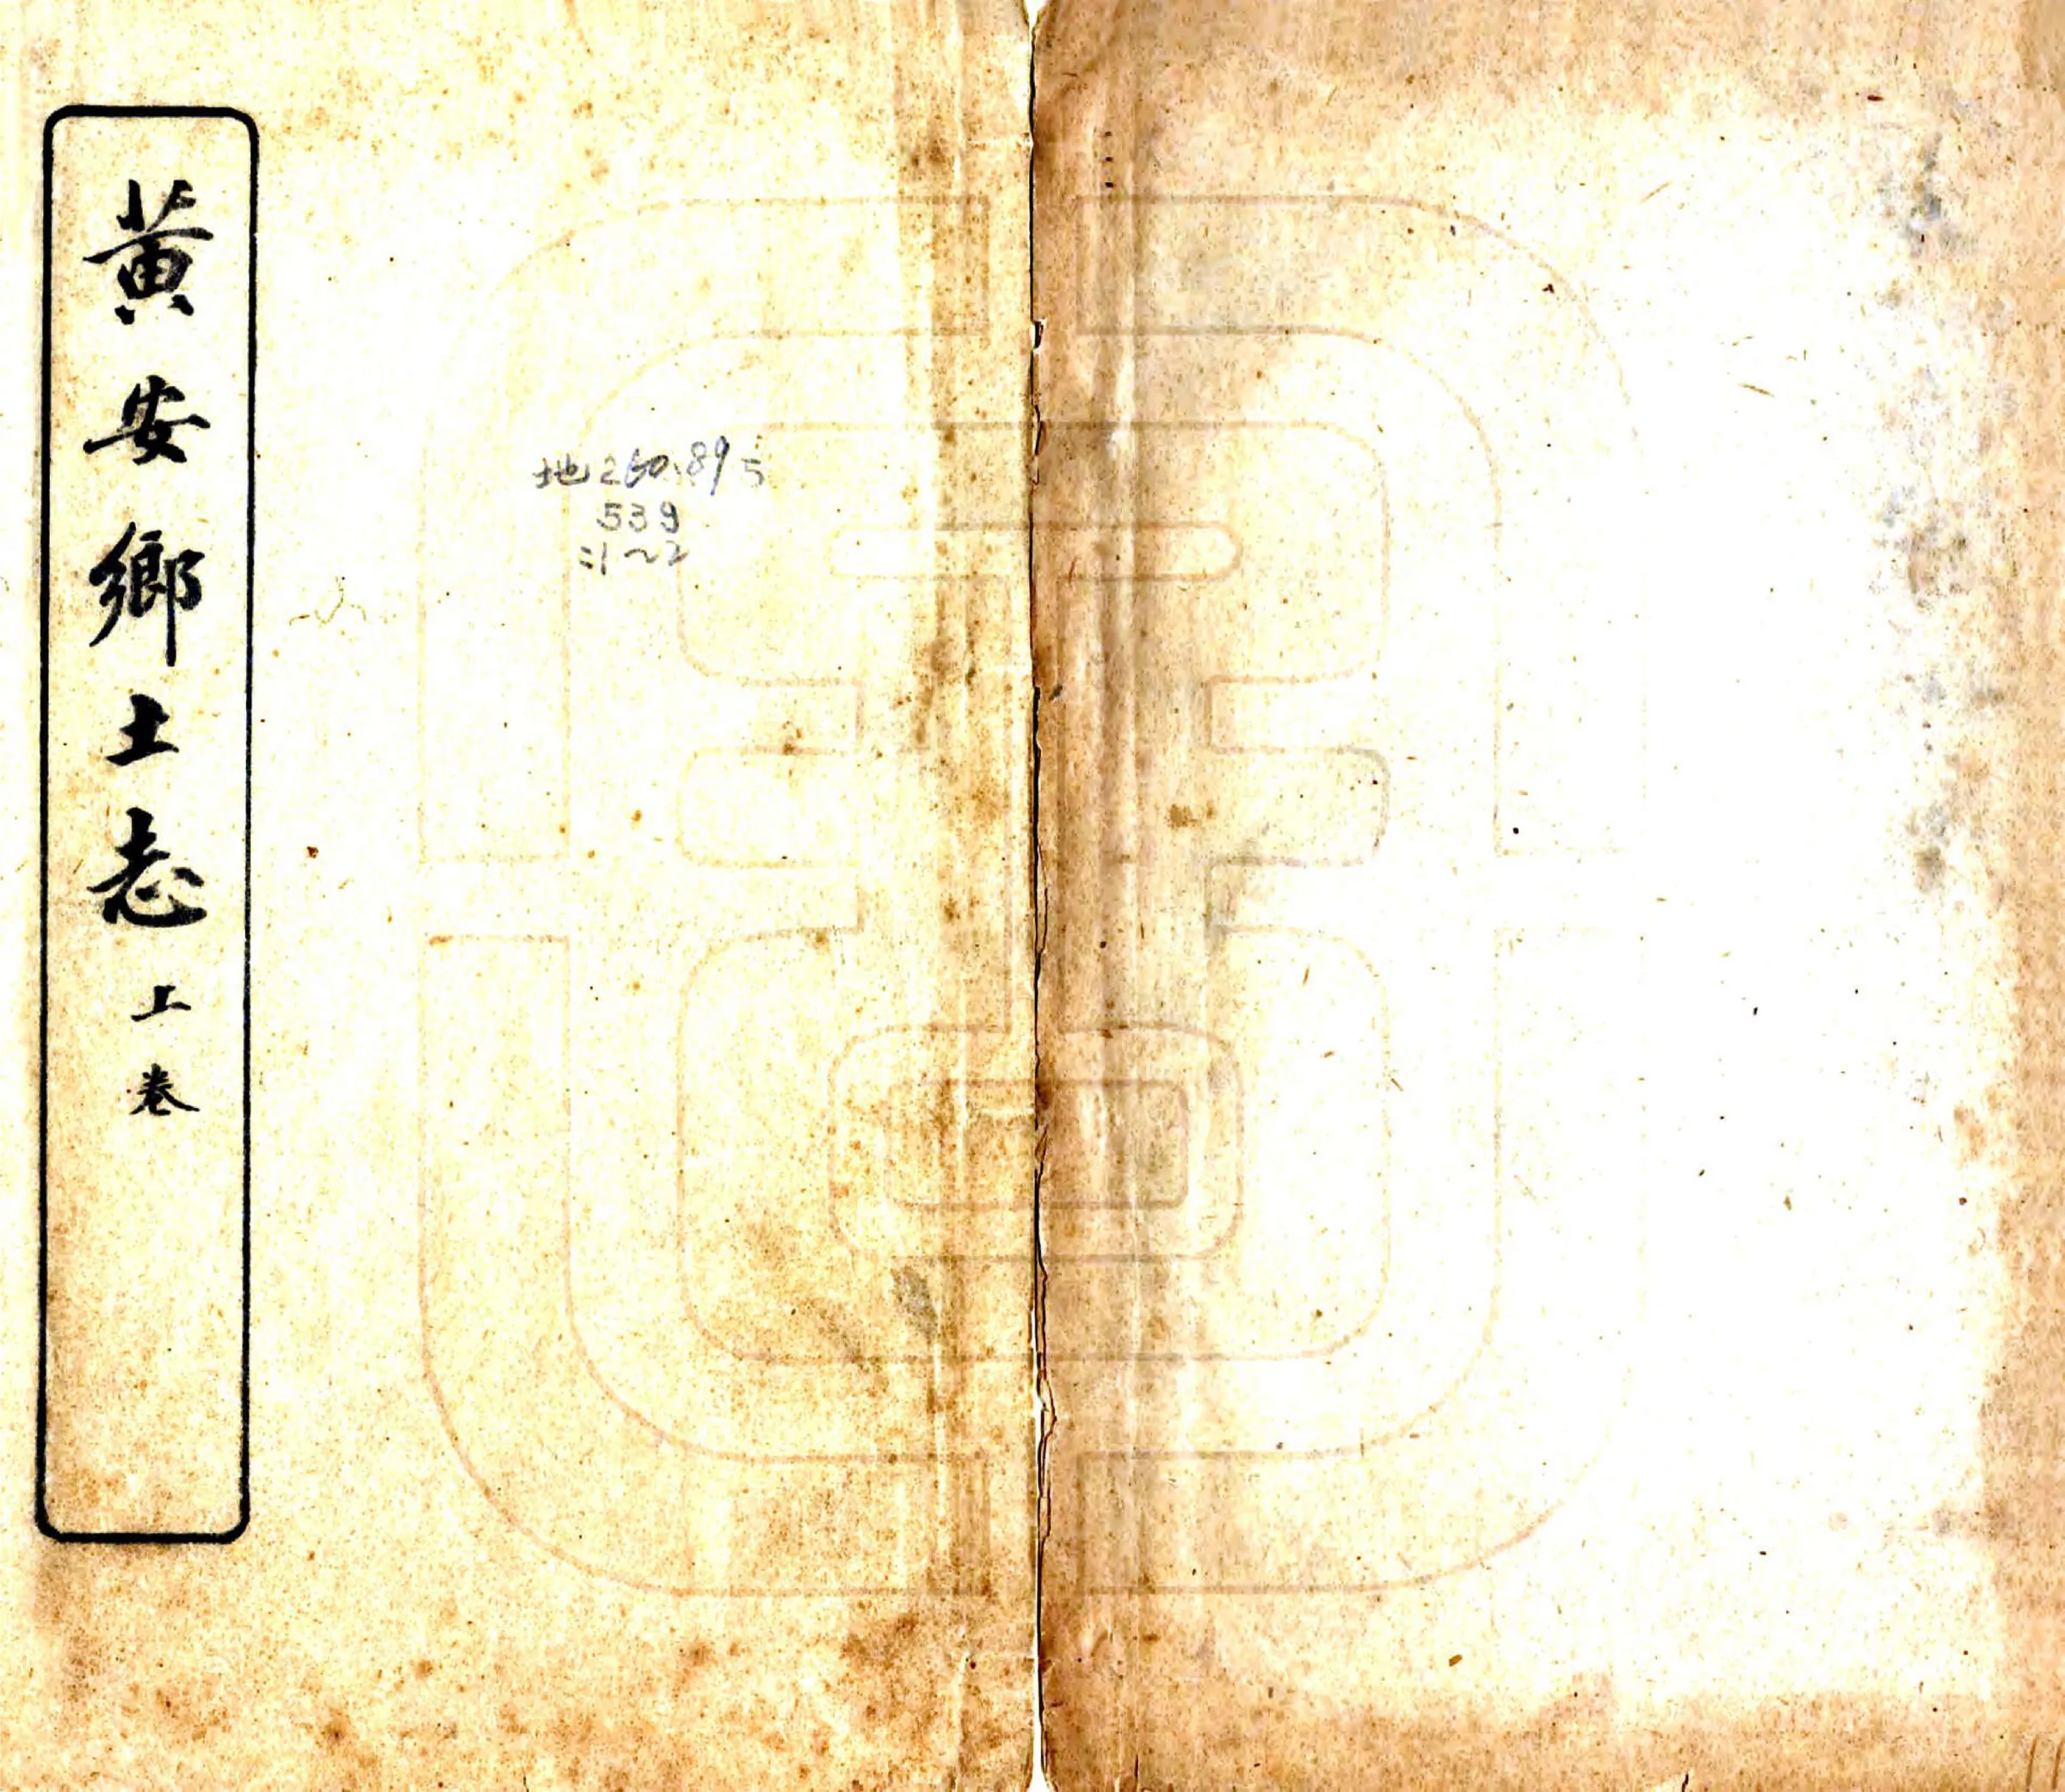 黄安鄉土志 上卷
地260.895
539
:1~2